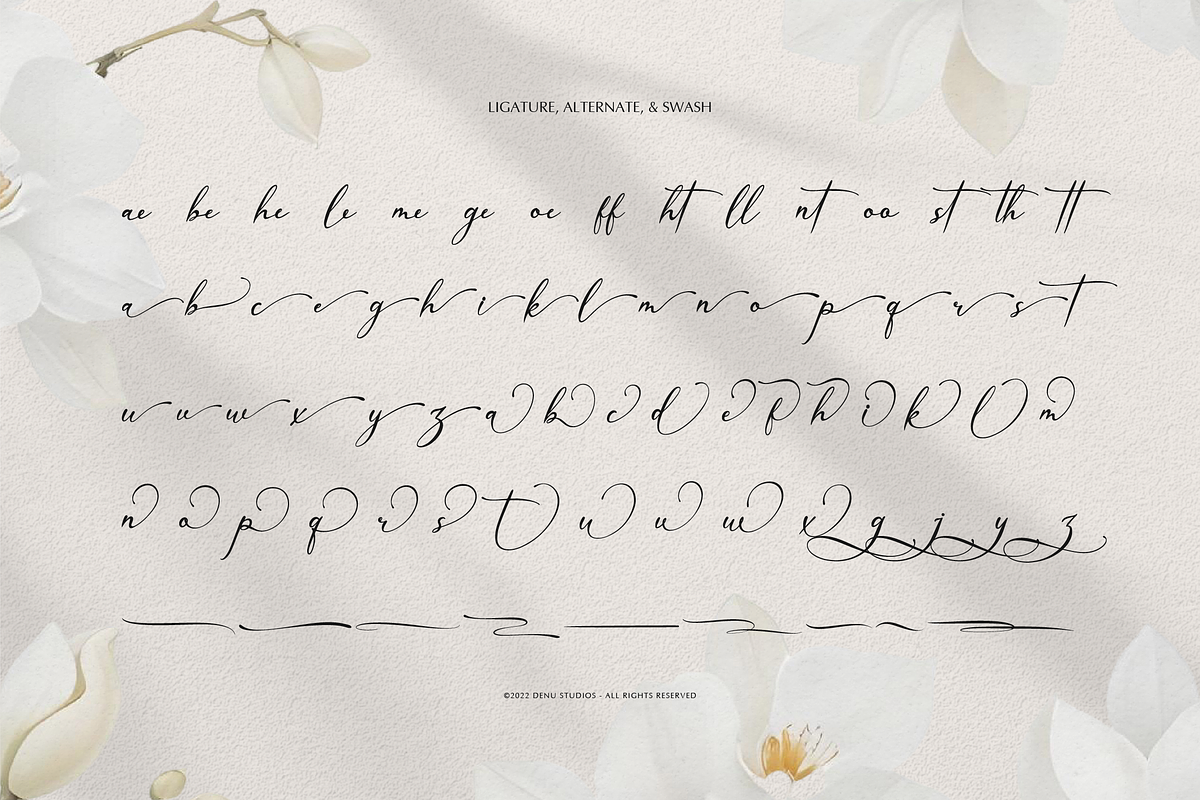 LIGATURE, ALTERNATE, & SWASH
ae be he le me ge oe ff ht ll nt oo st th tt
a b c e g h i k l m n o p q r s t
u v w x y z a b c d e f h i k l m
n o p q r s t u v w x g j y z
©2022 DENU STUDIOS - ALL RIGHTS RESERVED